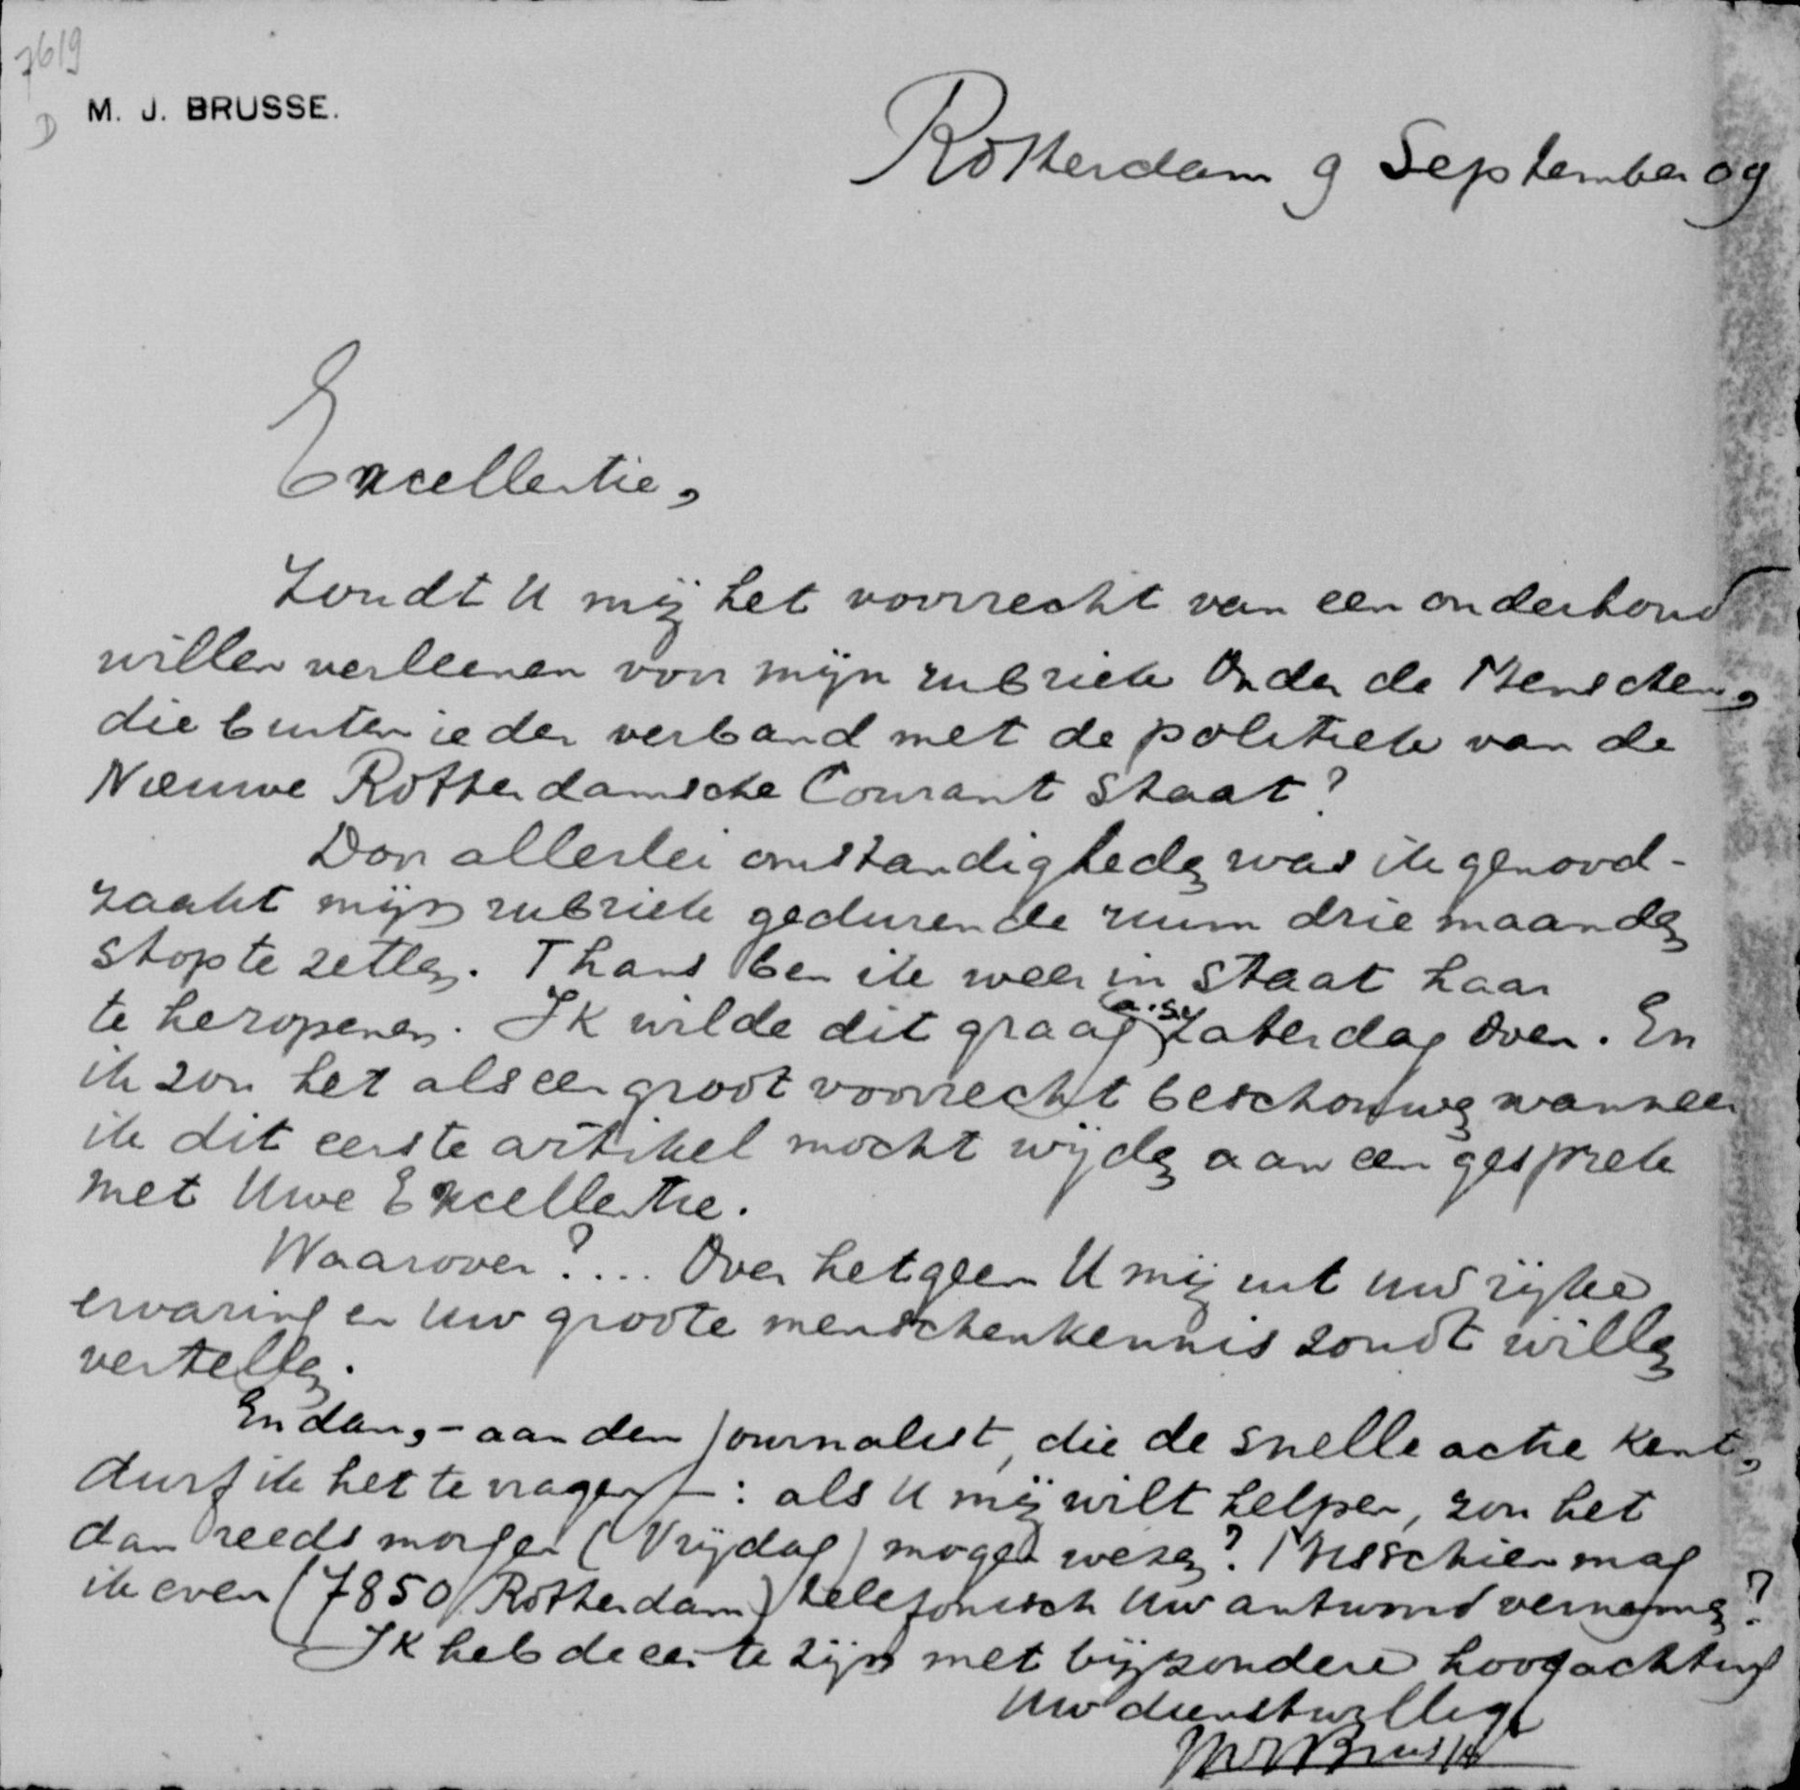 7619
D
M. J. BRUSSE.
Rotterdam 9 September 09
Excellentie,
Zoudt U mij het voorrecht van een onderhoud
willen verleenen voor mijn rubriek Onder de Menschen,
die buiten ieder verband met de politiek van de
Nieuwe Rotterdamsche Courant staat?
Door allerlei omstandigheden was ik genood-
zaakt mijn rubriek gedurende ruim drie maanden
stop te zetten. Thans ben ik weer in staat haar
te heropenen. Ik wilde dit graag a.s. Zaterdag doen. En
ik zou het als een groot voorrecht beschouwen wanneer
ik dit eerste artikel mocht wijden aan een gesprek
met Uwe Excellentie.
Waarover? ... Over hetgeen U mij uit uw rijke
ervaring en Uw groote menschenkennis zoudt willen
vertellen.
En dan, - aan den journalist, die de snelle actie kent,
durf ik het te vragen -: als U mij wilt helpen, zou het
dan reeds morgen (Vrijdag) mogen wezen? Misschien mag
ik even (7850 Rotterdam) telefonisch Uw antwoord vernemen?
Ik heb de eer te zijn met bijzondere hoogachting
Uw dienstwillige
MJ Brusse